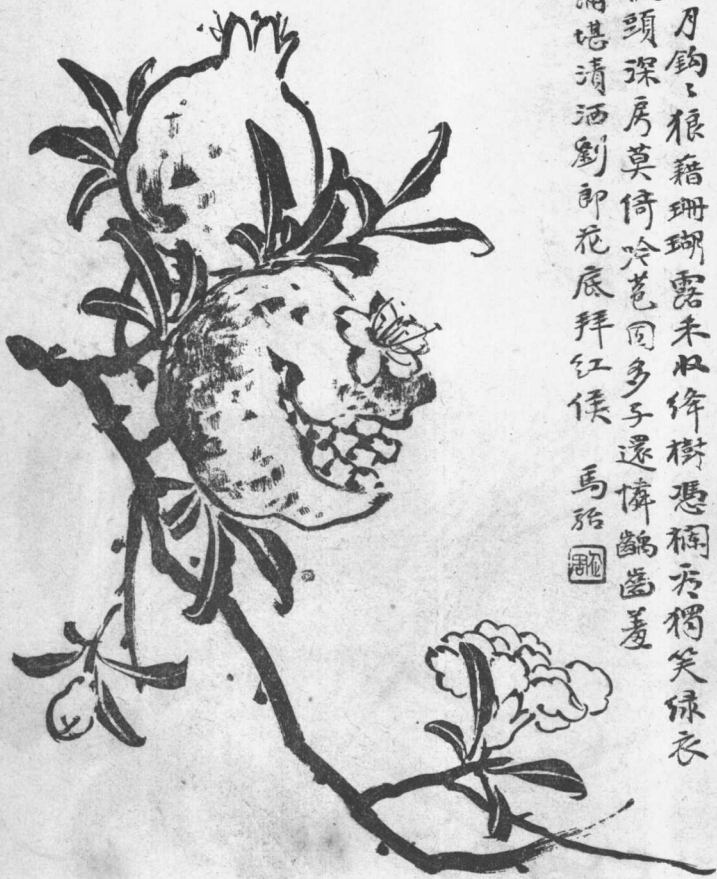 月鈎〻狼藉珊瑚露未收絳樹憑欄君獨笑緑衣
頭深房莫倚吟苞同多子還憐齲齒羞
堪漬洒劉郎花底拜红侯 馬